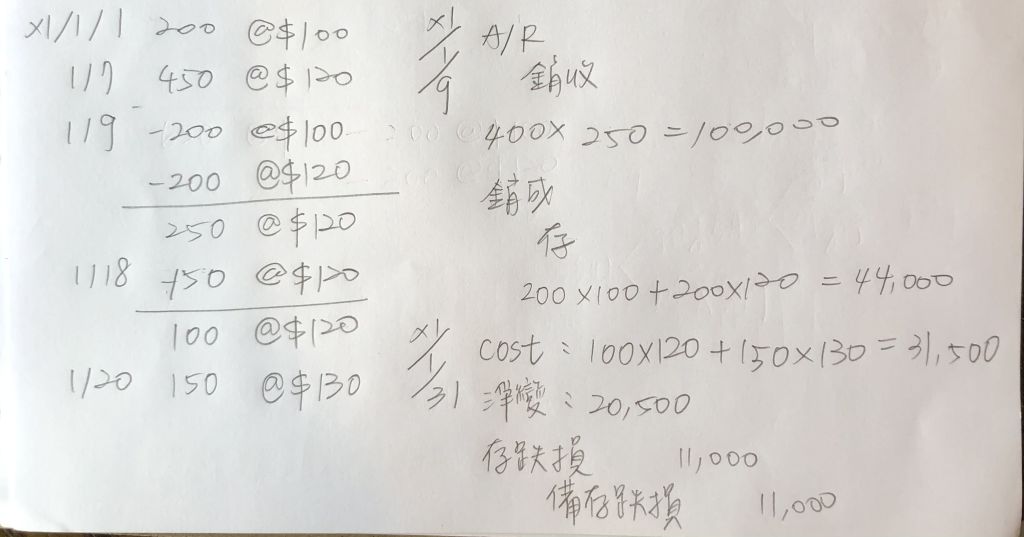 X1/1/1 200 @$100
1/7 450 @$120
1/9 -200 @$100
-200 @$120
250 @$120
1/18 -150 @$120
100 @$120
1/20 150 @$130
X1/1/9 A/R
銷收
400× 250 = 100,000
銷成
存
200×100+200×120 = 44,000
X1/1/31 cost : 100×120 + 150×130 = 31,500
淨變 : 20,500
存跌損 11,000
備存跌損 11,000